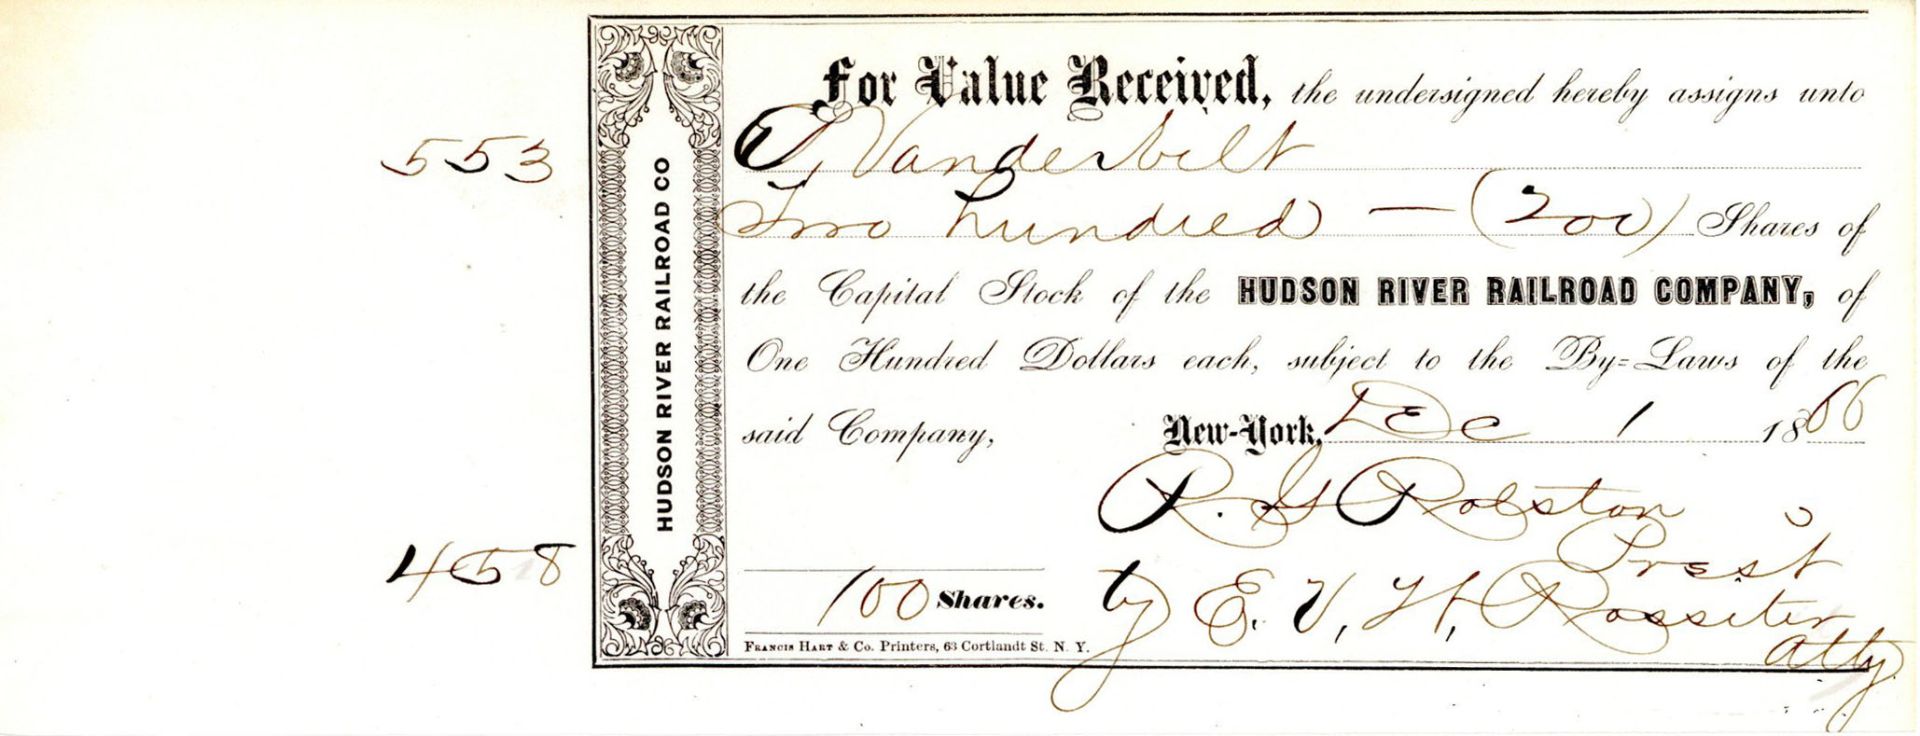 For Value Received, the undersigned hereby assigns unto
553
Vanderbilt
Two hundred — (200) Shares of
the Capital Stock of the HUDSON RIVER RAILROAD COMPANY, of
One Hundred Dollars each, subject to the By=Laws of the
said Company, New-York, Dec 1 1866
HUDSON RIVER RAILROAD CO
R. Rolston
Prest
458
100 Shares. by E. V. H. Rossiter
Atty
FRANCIS HART & Co. Printers, 63 Cortlandt St. N. Y.